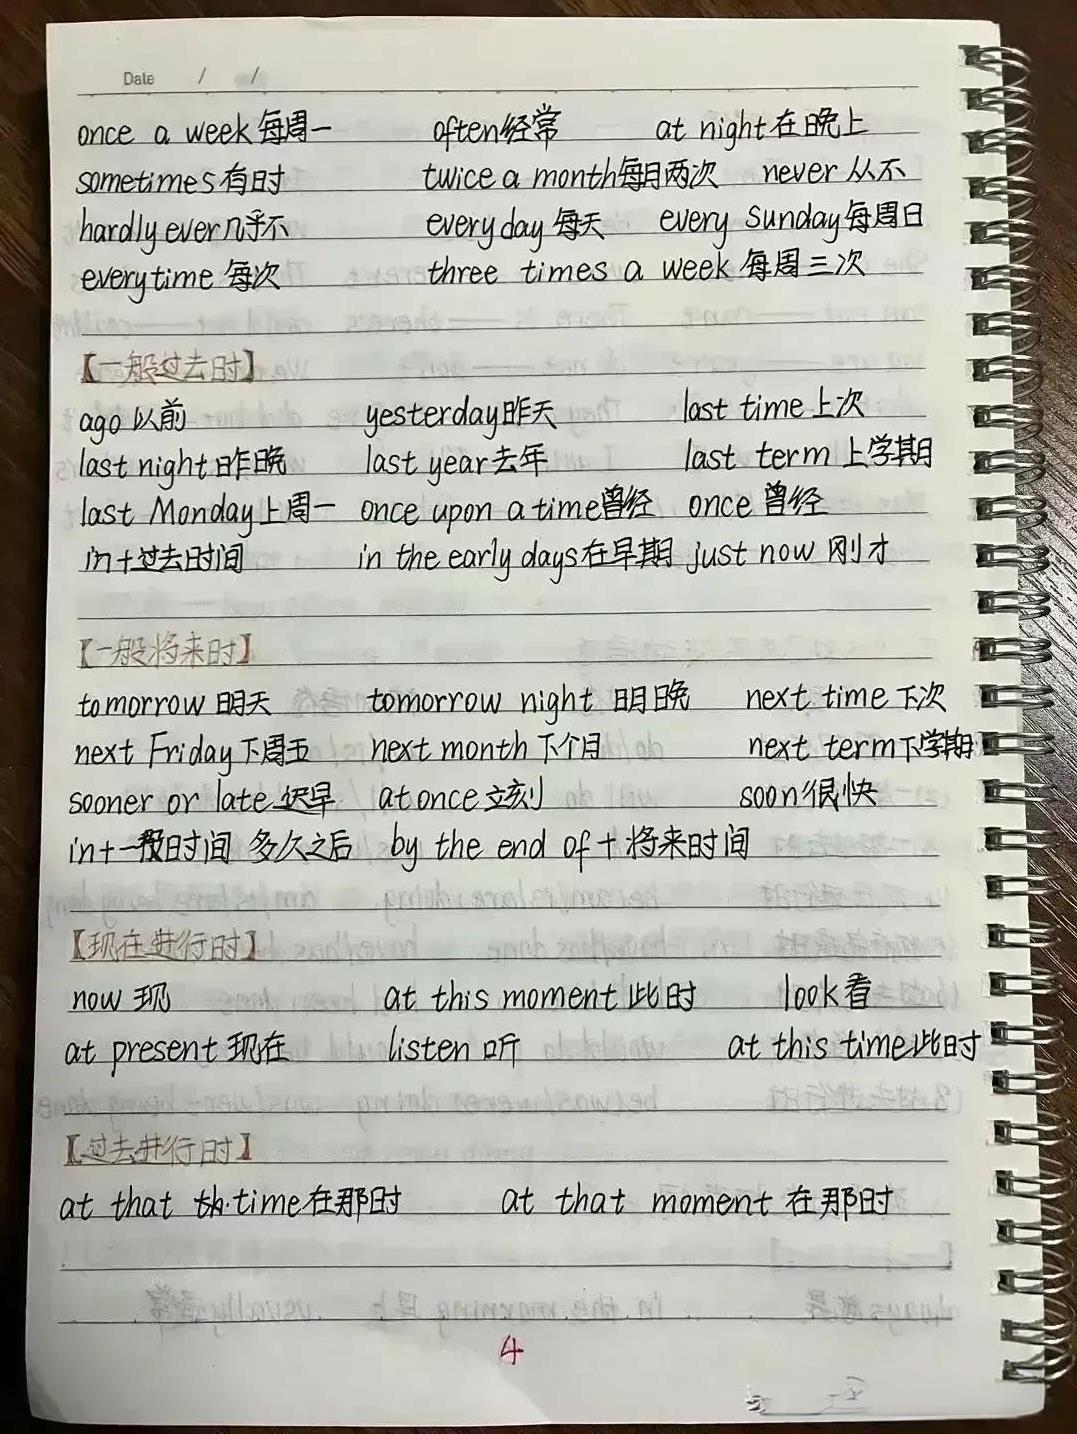 Date / /
once a week 每周一 often经常 at night在晚上
sometimes有时 twice a month每月两次 never 从不
hardly ever几乎不 every day 每天 every sunday每周日
every time 每次 three times a week 每周三次
【一般过去时】
ago 以前 yesterday昨天 last time 上次
last night 昨晚 last year去年 last term 上学期
last Monday上周一 once upon a time曾经 once 曾经
in+过去时间 in the early days在早期 just now 刚才
【一般将来时】
tomorrow 明天 tomorrow night 明晚 next time 下次
next Friday下周五 next month 下个月 next term下学期
sooner or late 迟早 at once 立刻 soon很快
in+一段时间 多久之后 by the end of + 将来时间
【现在进行时】
now 现 at this moment 此时 look看
at present 现在 listen 听 at this time此时
【过去进行时】
at that time在那时 at that moment 在那时
4